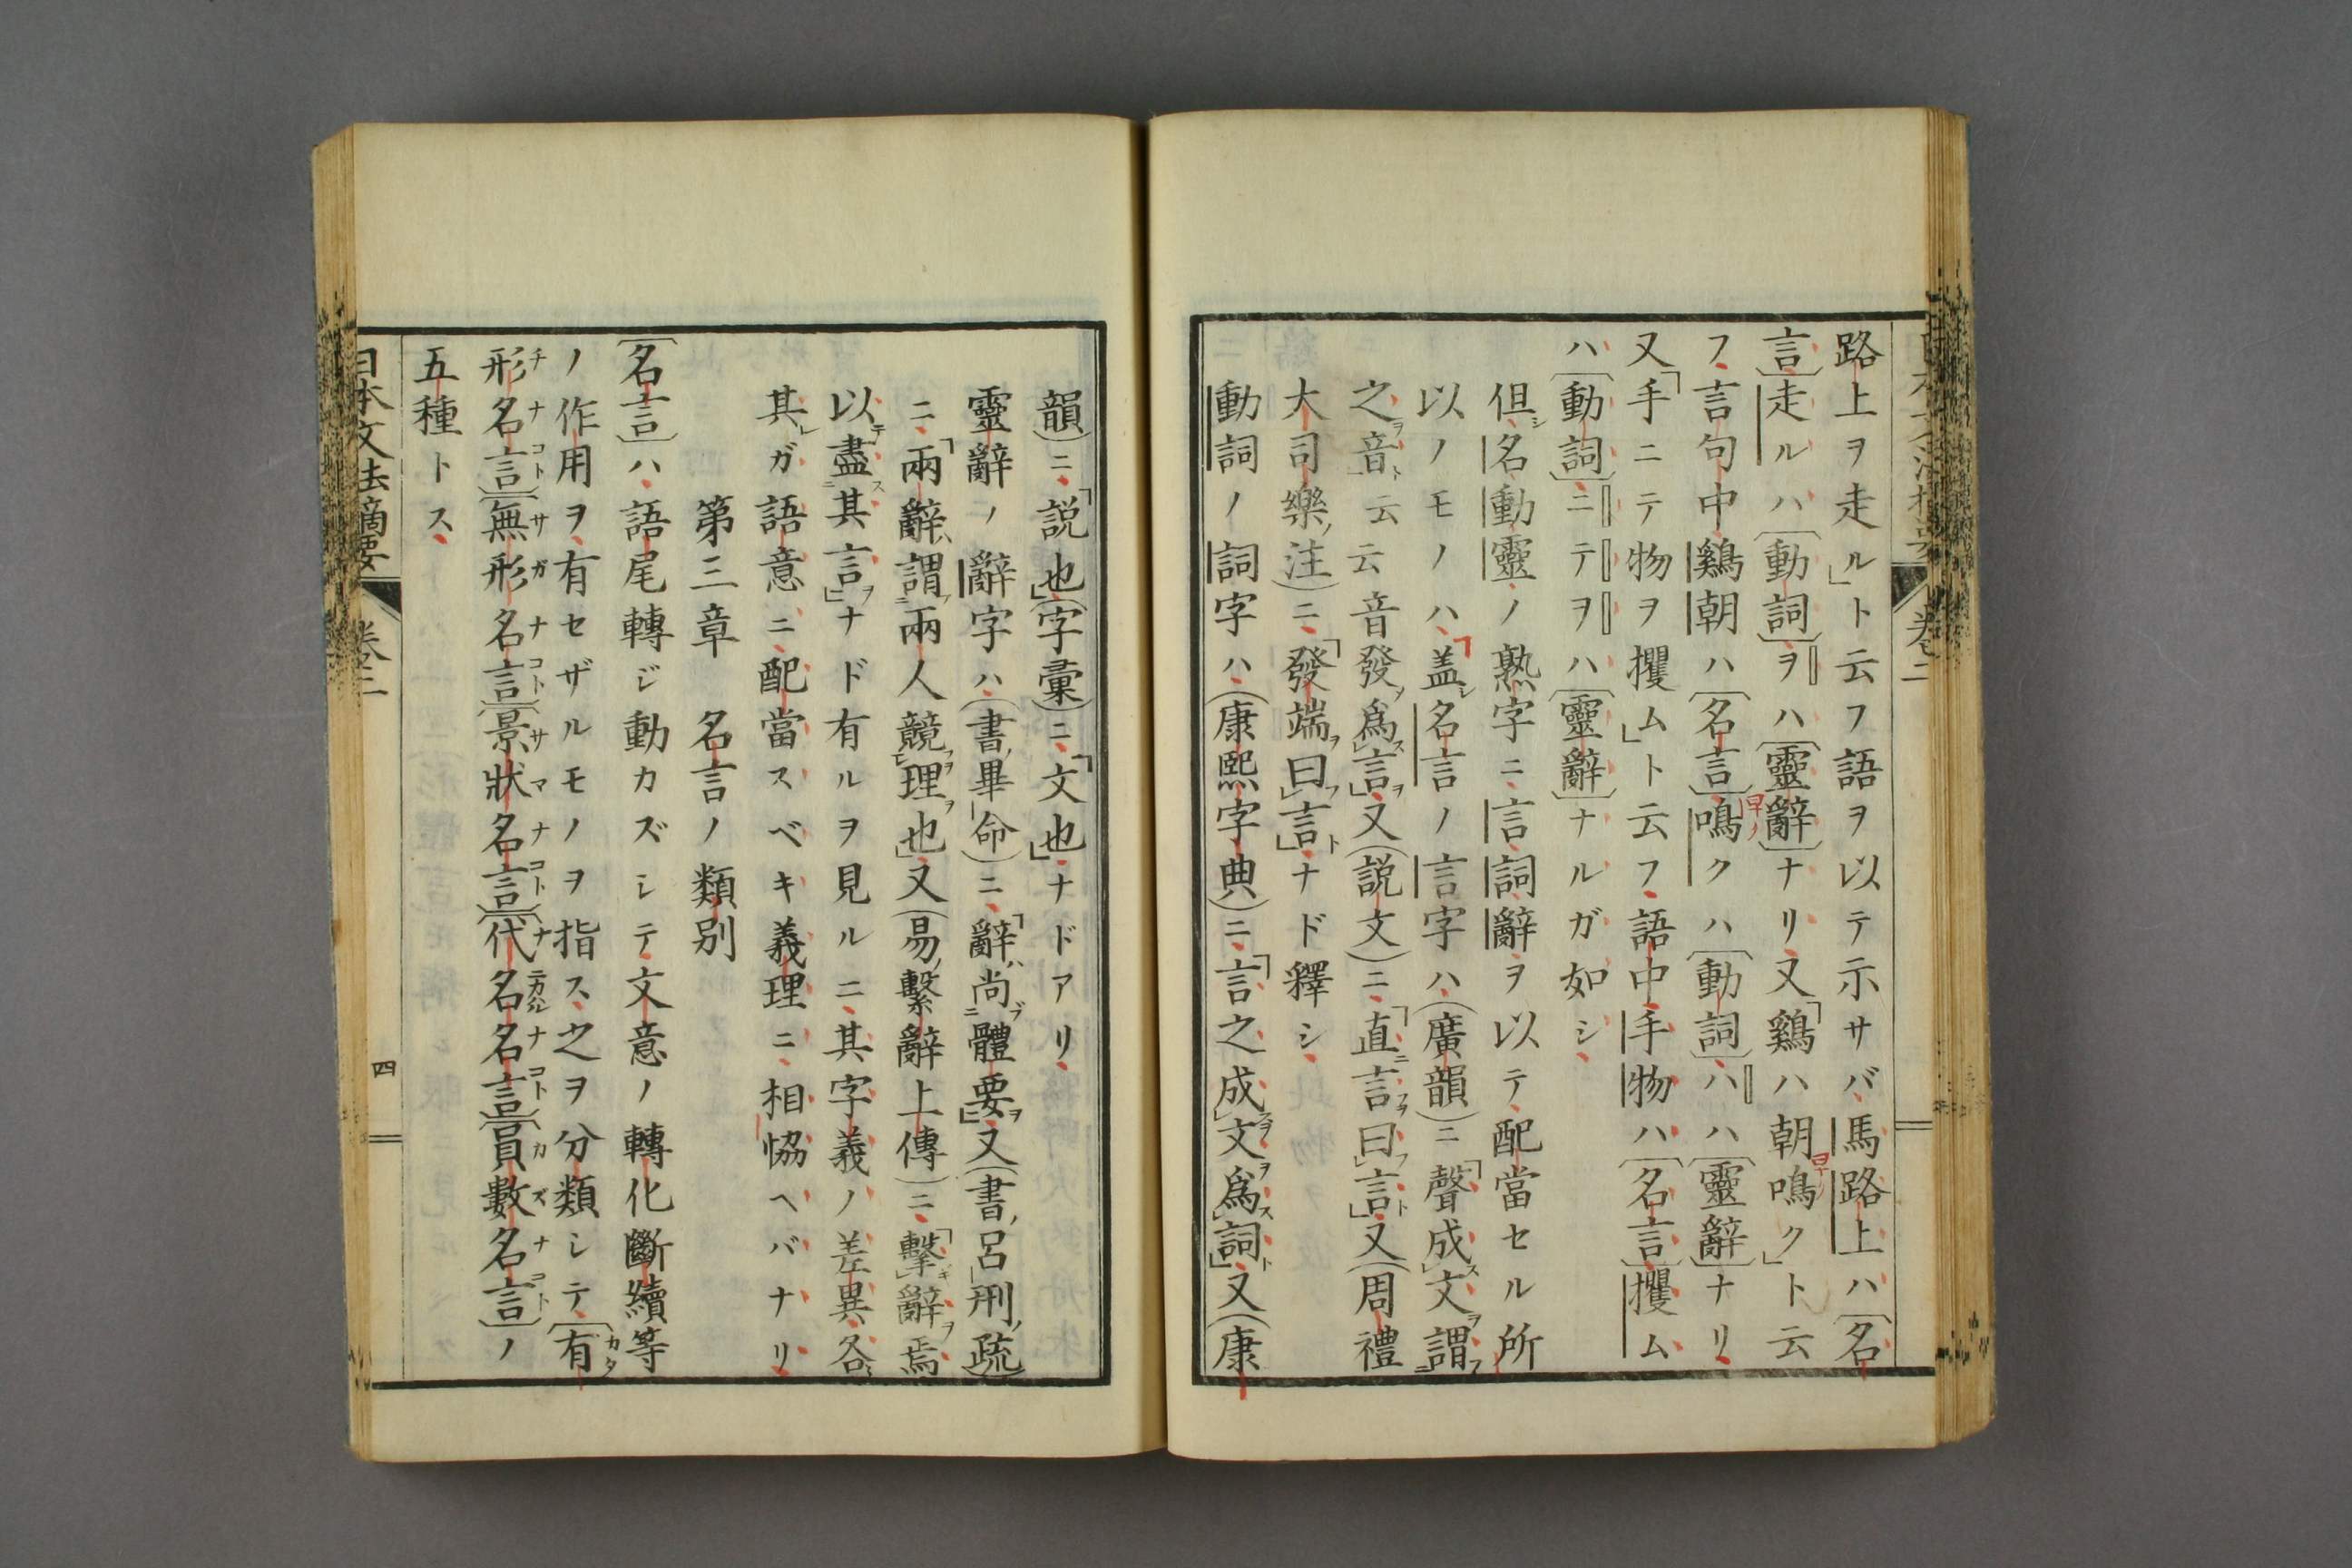 路上ヲ走ル」ト云フ語ヲ以テ示サバ、馬路上ハ〔名
言〕走ルハ〔動詞〕ヲハ〔靈辭〕ナリ、又「鷄ハ朝鳴ク」ト云
フ、言句中鷄朝ハ〔名言〕鳴クハ〔動詞〕ハハ〔靈辭〕ナリ、
又「手ニテ物ヲ攫ム」ト云フ、語中手物ハ〔名言〕攫ム
ハ〔動詞〕ニテヲハ〔靈辭〕ナルガ如シ、
但シ、名動靈ノ熟字ニ、言詞辭ヲ以テ配當セル所
以ノモノハ、「盖シ名言ノ言字ハ、(廣韻)ニ「聲成ス文ヲ謂フ
之ヲ音ト」云云音發ヲ爲ス言ヲ」又(説文)ニ、「直ニ言フヲ曰フ言ト」又(周禮
大司樂ノ注)ニ、「發端ヲ曰フ言ト」ナド釋シ、
動詞ノ詞字ハ、(康熙字典)ニ、「言之成スヲ文ヲ爲ス詞ト」、又(康
韻)ニ、「説也」(字彙)ニ、「文也」ナドアリ、
靈辭ノ辭字ハ、(書ノ畢命)ニ、「辭ハ尚ブ體要ヲ」又(書ノ呂刑ノ疏)
ニ、「兩辭ハ謂フ兩人競ヲ理ヲ也」又(易ノ繫辭上傳)ニ、「擊ギ辭ヲ焉
以テ盡ス其言ヲ」ナド有ルヲ見ルニ、其字義ノ差異各〻
其レガ語意ニ配當スベキ義理ニ、相恊ヘバナリ、
第三章 名言ノ類別
〔名言〕ハ、語尾轉ジ動カズシテ、文意ノ轉化斷續等
ノ作用ヲ、有セザルモノヲ指ス、之ヲ分類シテ、〔有カタ
形チ名ナ言コト〕〔無サ形ガ名ナ言コト〕〔景サ狀マ名ナ言コト〕〔代ナ名ニカハル名ナ言コト〕〔員カ數ズ名ナ言コト〕ノ
五種トス、
日本文法摘要 卷二 四